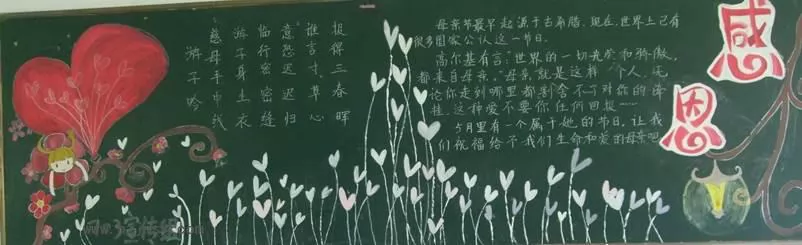 游子吟
慈母手中线
游子身上衣
临行密密缝
意恐迟迟归
谁言寸草心
报得三春晖
母亲节最早起源于古希腊.现在,世界上已有
很多国家公认这一节日。
高尔基有言:"世界的一切光荣和骄傲,
都来自母亲。"母亲就是这样一个人,无
论你走到哪里都割舍不了对你的牵
挂,这种爱不要你任何回报……
5月里有一个属于她的节日,让我
们祝福给予我们生命和爱的母亲吧
感恩